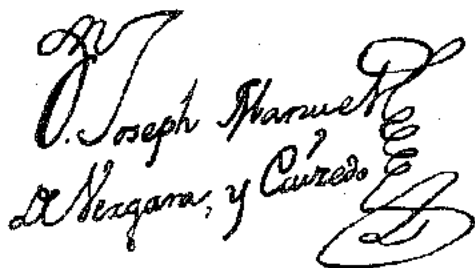 D. Joseph Manuel
De Vergara, y Caizedo